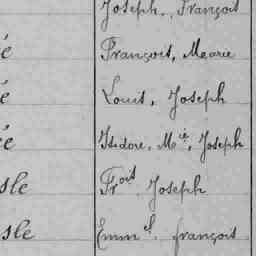 Joseph, François
é François, Marie
é Louis, Joseph
ée Isidore, Mie, Joseph
sle Frois Joseph
sle Emmel, françois